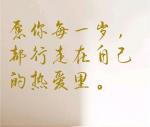 愿你每一岁，
都行走在自己
的热爱里。